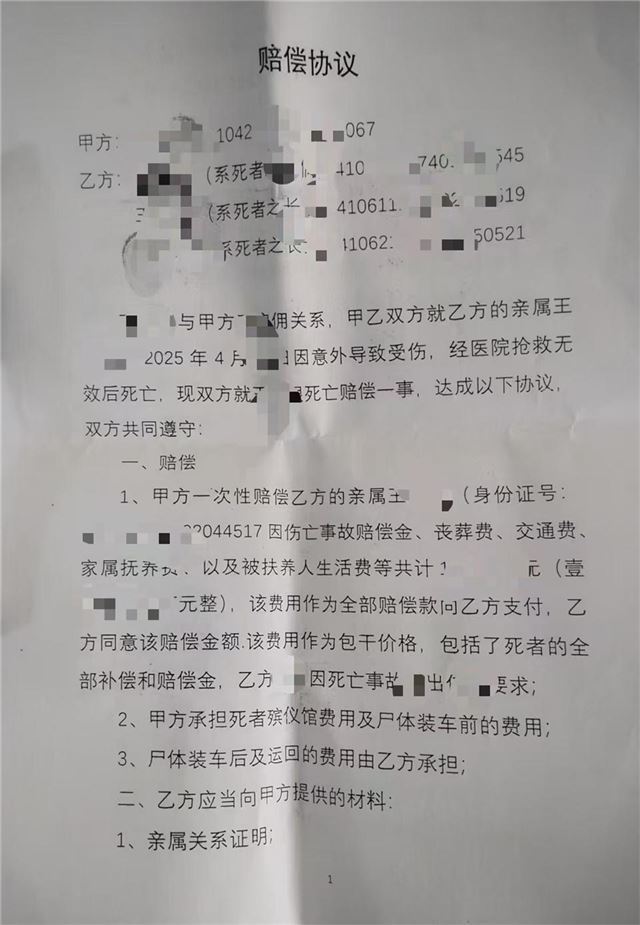 赔偿协议
甲方: 1042 067
乙方: (系死者 410 740 545
(系死者之长 410611 519
系死者之长 410621 50521
与甲方 佣关系，甲乙双方就乙方的亲属王
2025 年 4 月 日因意外导致受伤，经医院抢救无
效后死亡，现双方就 死亡赔偿一事，达成以下协议，
双方共同遵守:
一、赔偿
1、甲方一次性赔偿乙方的亲属王 (身份证号:
02044517 因伤亡事故赔偿金、丧葬费、交通费、
家属抚养费、以及被扶养人生活费等共计 1 元（壹
元整），该费用作为全部赔偿款向乙方支付，乙
方同意该赔偿金额.该费用作为包干价格，包括了死者的全
部补偿和赔偿金，乙方 因死亡事故 出 要求;
2、甲方承担死者殡仪馆费用及尸体装车前的费用;
3、尸体装车后及运回的费用由乙方承担;
二、乙方应当向甲方提供的材料:
1、亲属关系证明;
1